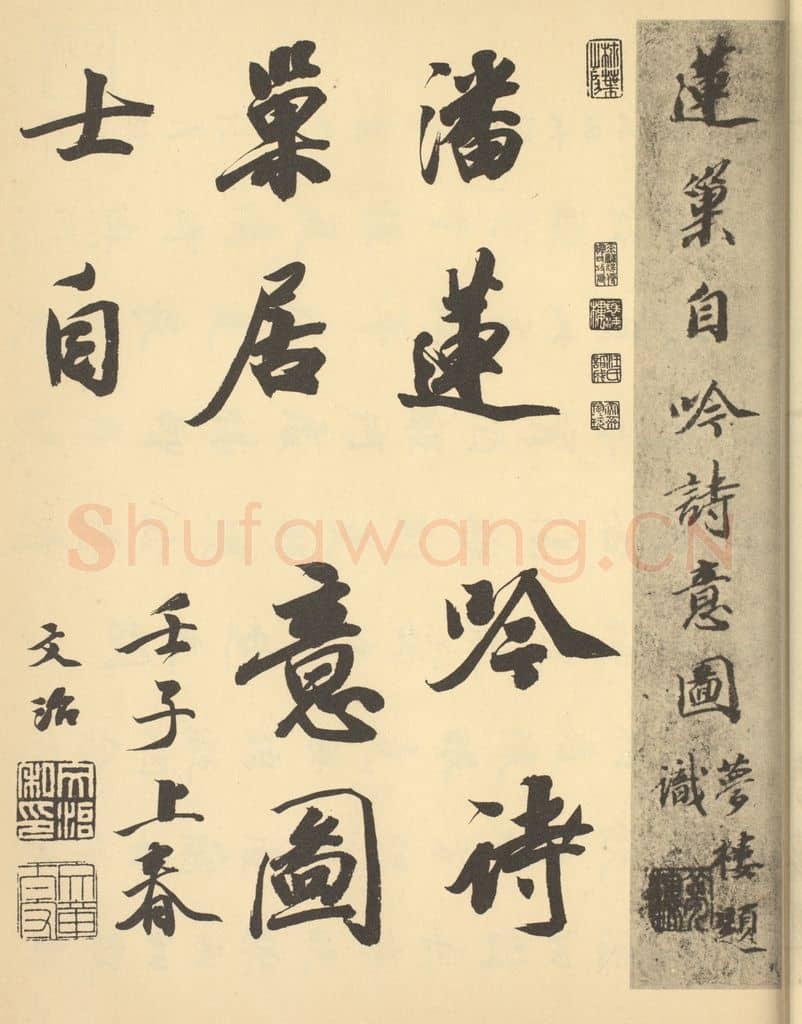 蓮巢自吟詩意圖
夢樓題
識
潘蓮
巢居
士自
吟诗
意圖
壬子上春
文治
Shufawang.CN